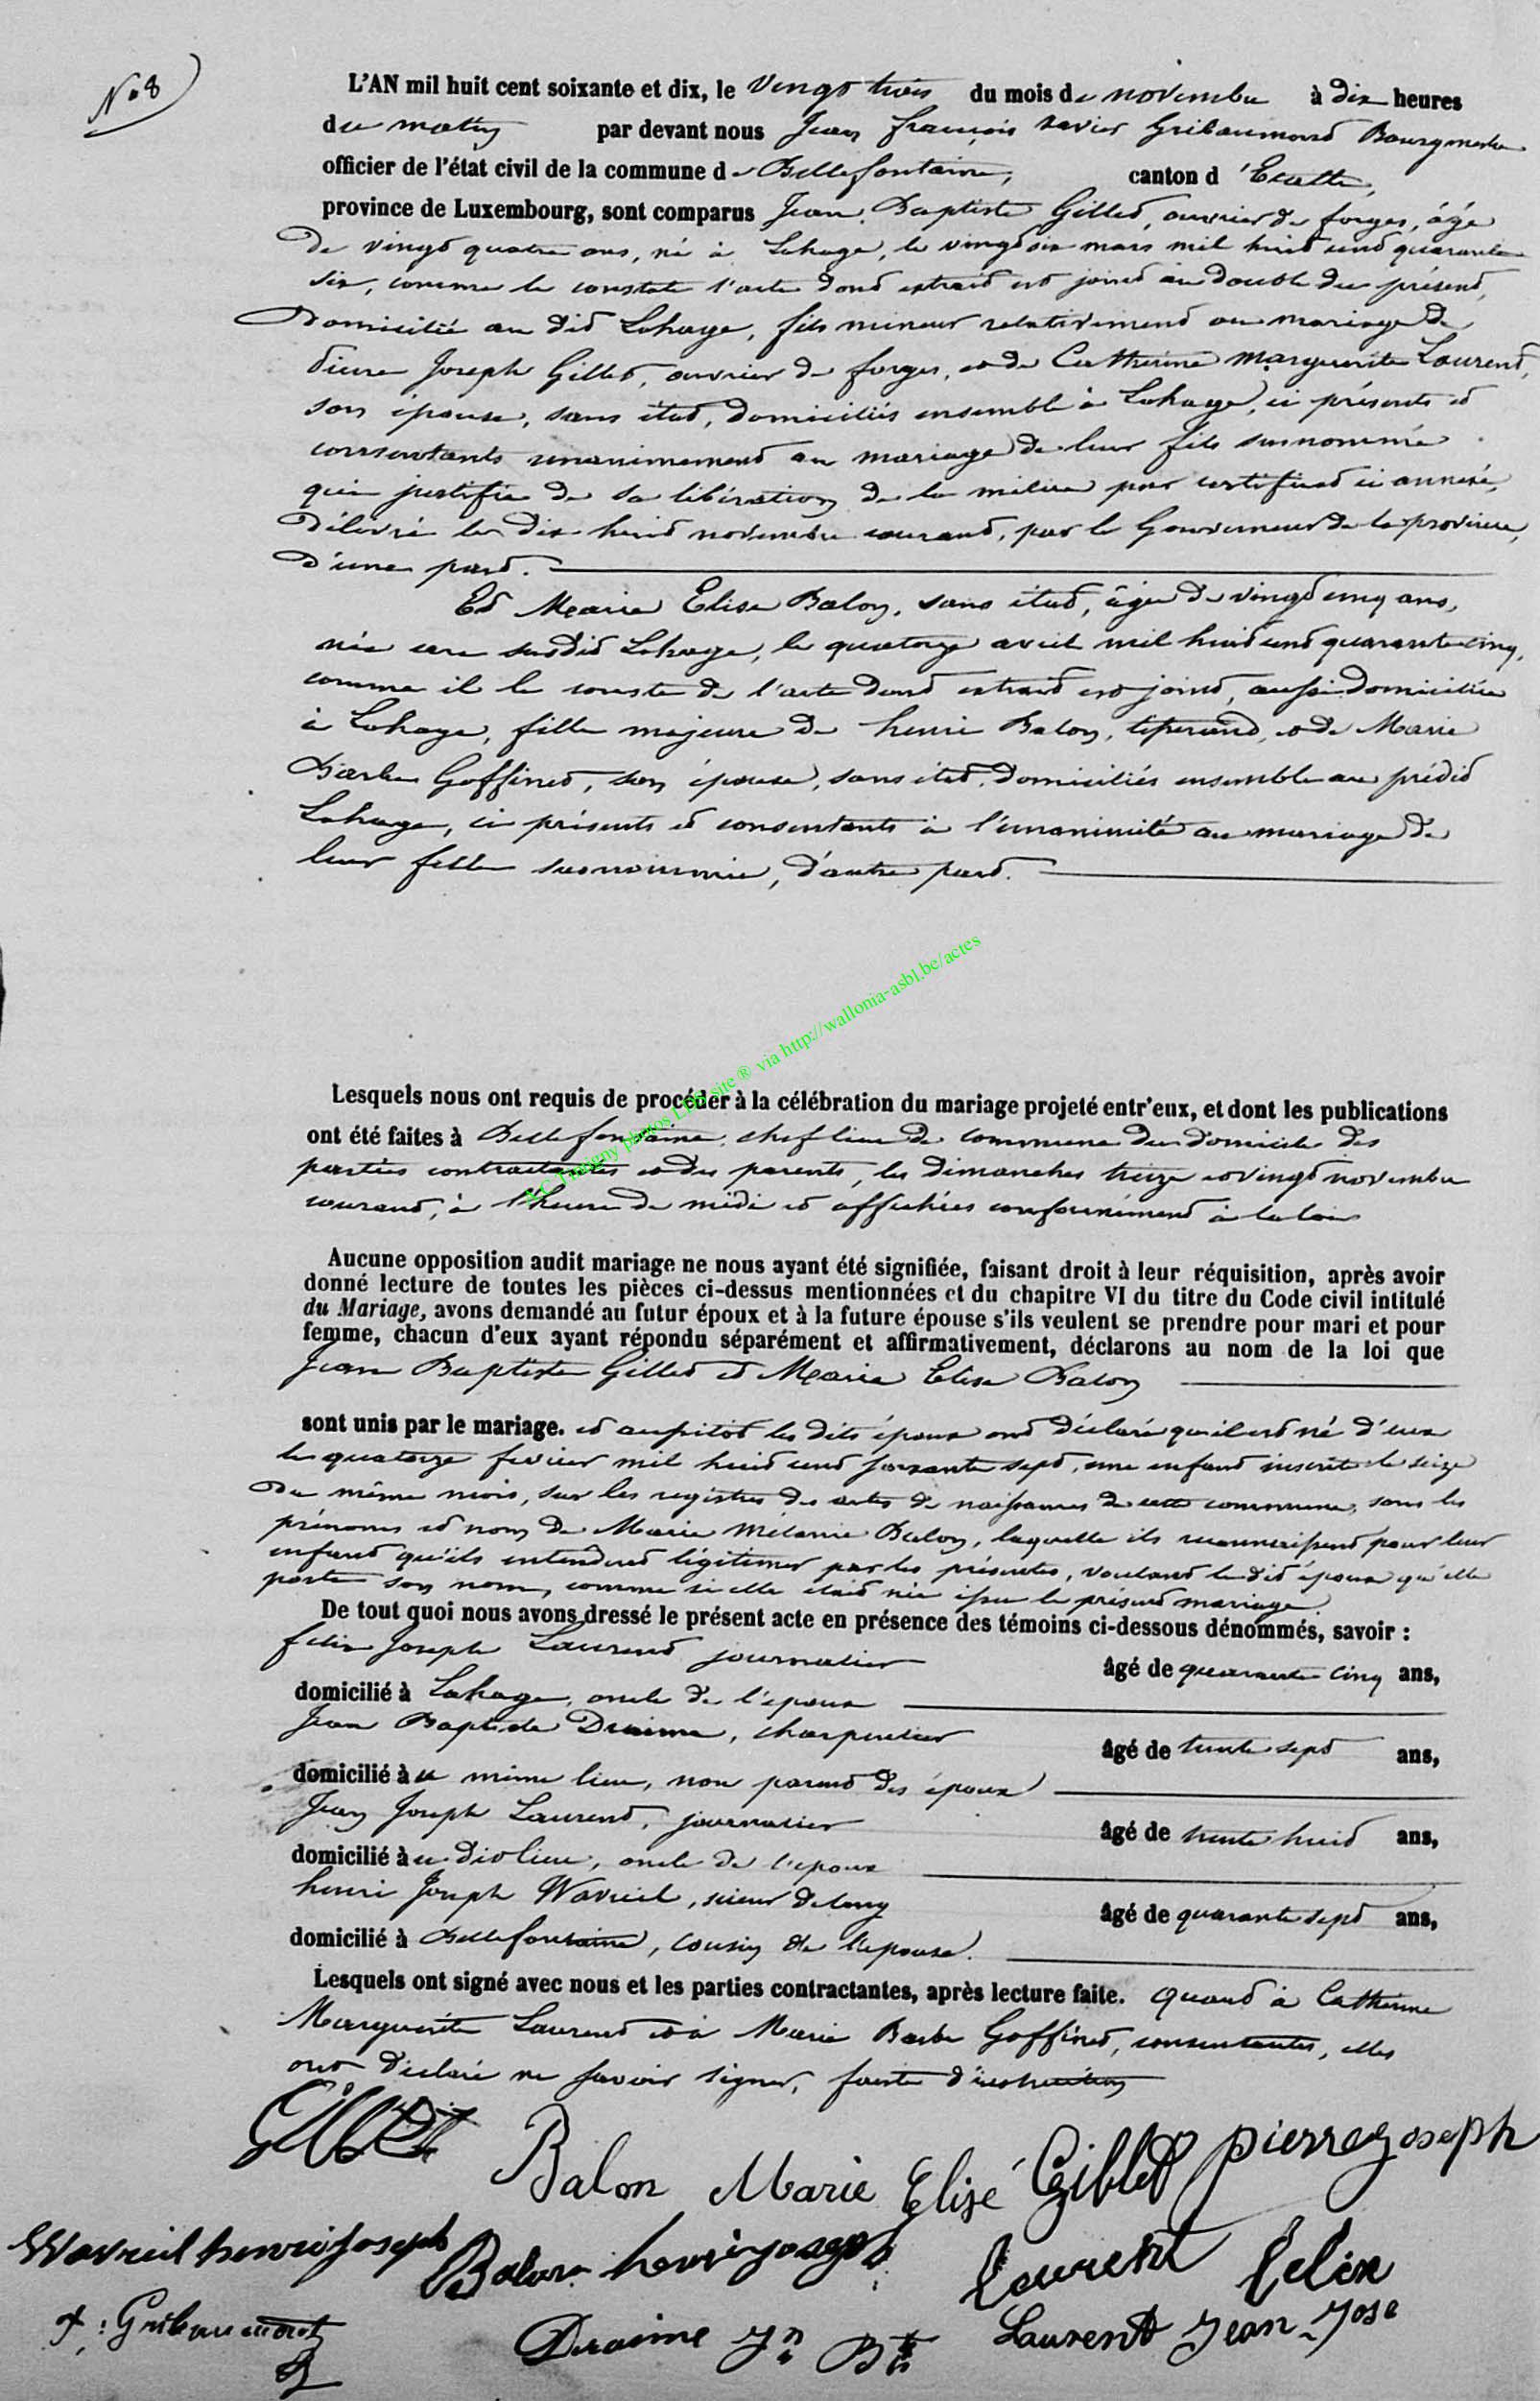 N° 8
L'AN mil huit cent soixante et dix, le vingt trois du mois de novembre à dix heures
du matin par devant nous Jean françois xavier Gribaumont Bourgmestre
officier de l'état civil de la commune de Bellefontaine, canton d'Etalle,
province de Luxembourg, sont comparus Jean Baptiste Gillet, ouvrier de forges, âgé
de vingt quatre ans, né à Lahage, le vingt six mars mil huit cent quarante
six, comme le constate l'acte dont extrait est joint au double du présent,
domicilié au dit Lahage, fils mineur relativement au mariage de
Pierre Joseph Gillet, ouvrier de forges, et de Catherine Marguerite Laurent,
son épouse, sans état, domiciliés ensemble à Lahage, ci présents et
consentants unanimement au mariage de leur fils susnommé
qui justifie de sa libération de la milice par certificat ci annexé,
délivré le dix huit novembre courant, par le Gouverneur de la province,
d'une part.
Et Marie Elise Balon, sans état, âgée de vingt cinq ans,
née au susdit Lahage, le quatorze avril mil huit cent quarante cinq,
comme il le conste de l'acte dont extrait est joint, aussi domiciliée
à Lahage, fille majeure de henri Balon, tisserand, et de Marie
Barbe Goffinet, son épouse, sans état, domiciliés ensemble au prédit
Lahage, ci présents et consentants à l'unanimité au mariage de
leur fille susnommée, d'autre part.
A.C Tintigny photos LDS site ® via http://wallonia-asbl.be/actes
Lesquels nous ont requis de procéder à la célébration du mariage projeté entr'eux, et dont les publications
ont été faites à Bellefontaine, chef lieu de commune du domicile des
parties contractantes et des parents, les dimanches treize et vingt novembre
courant, à l'heure de midi et affichées conformément à la loi
Aucune opposition audit mariage ne nous ayant été signifiée, faisant droit à leur réquisition, après avoir
donné lecture de toutes les pièces ci-dessus mentionnées et du chapitre VI du titre du Code civil intitulé
du Mariage, avons demandé au futur époux et à la future épouse s'ils veulent se prendre pour mari et pour
femme, chacun d'eux ayant répondu séparément et affirmativement, déclarons au nom de la loi que
Jean Baptiste Gillet et Marie Elise Balon
sont unis par le mariage. et aussitôt les dits époux ont déclaré qu'il est né d'eux
le quatorze fevrier mil huit cent soixante sept, une enfant inscrite le seize
du même mois, sur les registres des actes de naissances de cette commune, sous les
prénoms et nom de Marie Mélanie Balon, laquelle ils reconnaissent pour leur
enfant qu'ils entendent légitimer par les présentes, voulant le dit époux qu'elle
porte son nom, comme si elle était née issue le présent mariage.
De tout quoi nous avons dressé le présent acte en présence des témoins ci-dessous dénommés, savoir :
felix Joseph Laurent journalier âgé de quarante cinq ans,
domicilié à Lahage, oncle de l'époux
Jean Baptiste Draime, charpentier âgé de trente sept ans,
domicilié à ce même lieu, non parent des époux
Jean Joseph Laurent, journalier âgé de trente huit ans,
domicilié à ce dit lieu, oncle de l'époux
henri Joseph Wavreil, scieur de long âgé de quarante sept ans,
domicilié à Bellefontaine, cousin de l'épouse.
Lesquels ont signé avec nous et les parties contractantes, après lecture faite. Quant à Catherine
Marguerite Laurent et à Marie Barbe Goffinet, consentantes, elles
ont déclaré ne savoir signer, faute d'instruction
Gillet Balon Marie Elise Gillet pierre Joseph
Wavreil henri Joseph Balon henri joseph Laurent Felix
f: Gribaumont Draime Jn Bte Laurent Jean-Jose